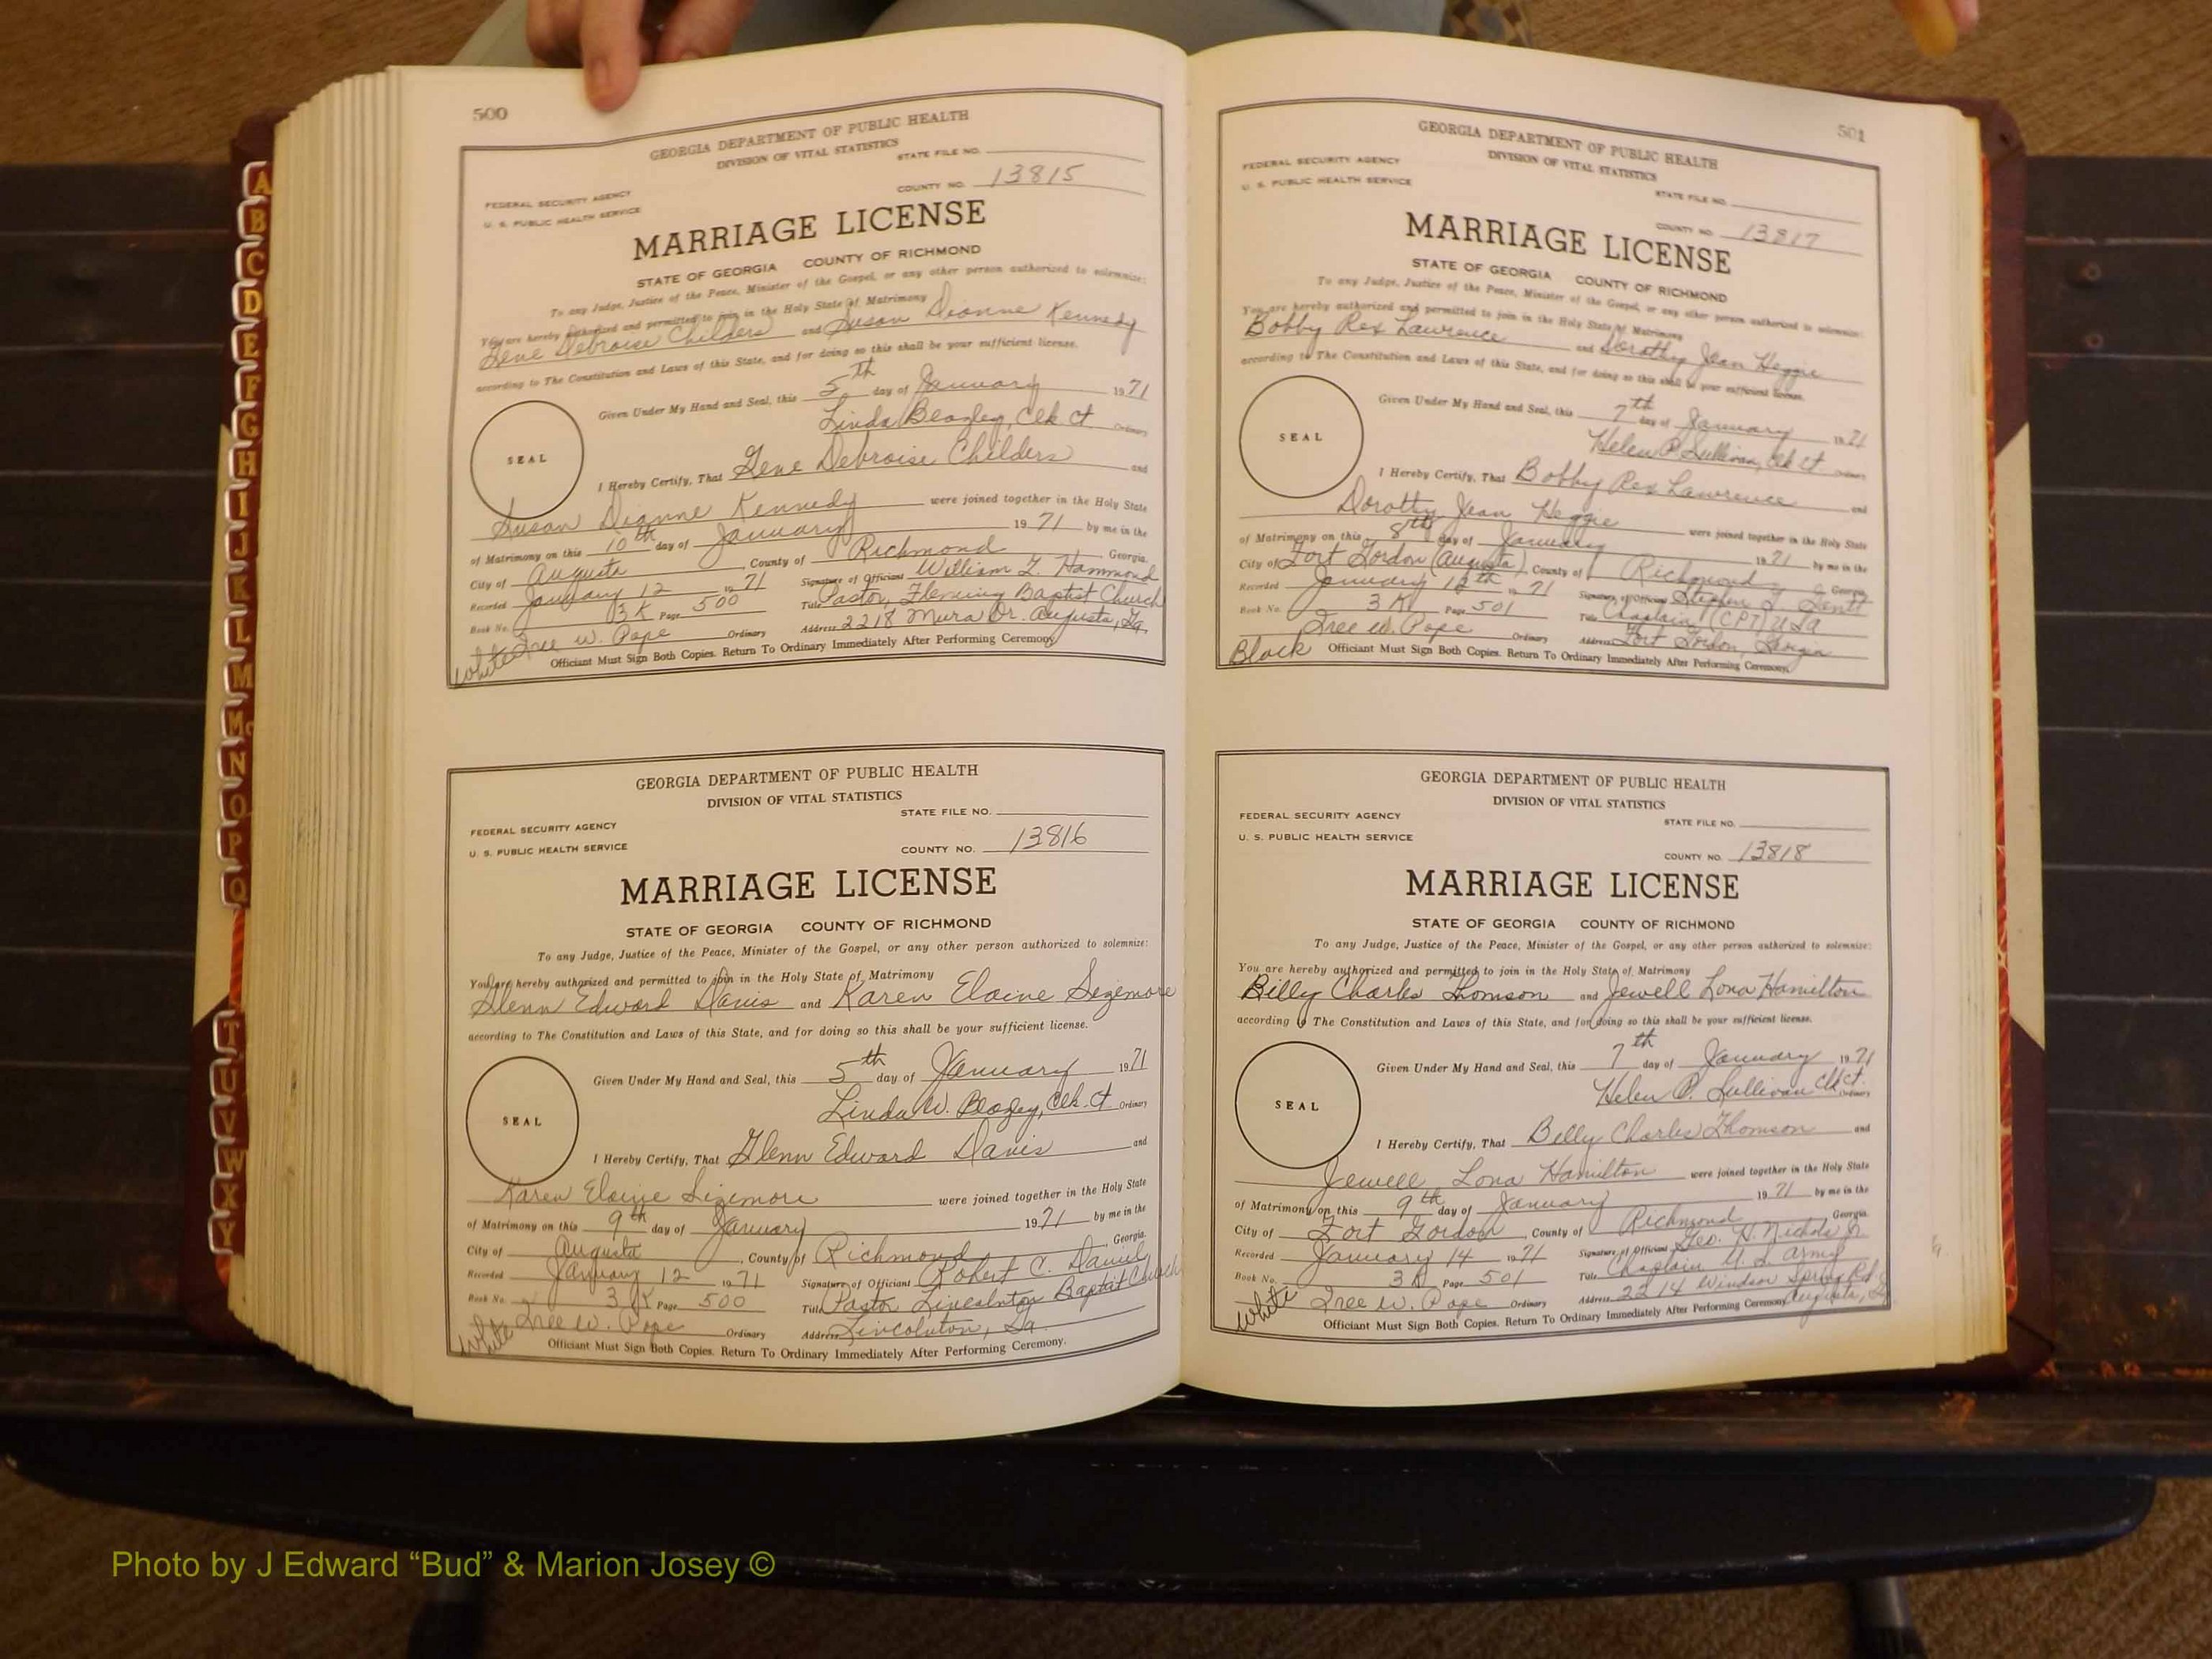 A
B
C
D
E
F
G
H
I
J
K
L
M
Mc
N
O
P
Q
T
U
V
W
X
Y
500
GEORGIA DEPARTMENT OF PUBLIC HEALTH
DIVISION OF VITAL STATISTICS
STATE FILE NO.
FEDERAL SECURITY AGENCY
COUNTY NO. 13815
U. S. PUBLIC HEALTH SERVICE
MARRIAGE LICENSE
STATE OF GEORGIA COUNTY OF RICHMOND
To any Judge, Justice of the Peace, Minister of the Gospel, or any other person authorized to solemnize:
You are hereby authorized and permitted to join in the Holy State of Matrimony
Gene Debroise Childers and Susan Dianne Kennedy
according to The Constitution and Laws of this State, and for doing so this shall be your sufficient license.
Given Under My Hand and Seal, this 5th day of January 1971
Linda Beazley, Clk. Ct Ordinary
SEAL
I Hereby Certify, That Gene Debroise Childers and
Susan Dianne Kennedy were joined together in the Holy State
of Matrimony on this 10th day of January 1971 by me in the
City of Augusta, County of Richmond Georgia.
Recorded January 12 1971 Signature of Official William L. Hammond
Book No. 3K Page 500 Title Pastor, Fleming Baptist Church
Tree W. Pope Ordinary Address 2218 Mura Dr. Augusta, Ga.
White Officiant Must Sign Both Copies. Return To Ordinary Immediately After Performing Ceremony
GEORGIA DEPARTMENT OF PUBLIC HEALTH
DIVISION OF VITAL STATISTICS
STATE FILE NO.
FEDERAL SECURITY AGENCY
U. S. PUBLIC HEALTH SERVICE
COUNTY NO. 13816
MARRIAGE LICENSE
STATE OF GEORGIA COUNTY OF RICHMOND
To any Judge, Justice of the Peace, Minister of the Gospel, or any other person authorized to solemnize:
You are hereby authorized and permitted to join in the Holy State of Matrimony
Glenn Edward Davis and Karen Elaine Sizemore
according to The Constitution and Laws of this State, and for doing so this shall be your sufficient license.
Given Under My Hand and Seal, this 5th day of January 1971
Linda W. Beazley, Clk. Ct Ordinary
SEAL
I Hereby Certify, That Glenn Edward Davis and
Karen Elaine Sizemore were joined together in the Holy State
of Matrimony on this 9th day of January 1971 by me in the
City of Augusta, County of Richmond, Georgia.
Recorded January 12 1971 Signature of Official Robert C. Daniel
Book No. 3K Page 500 Title Pastor Lincolnton Baptist Church
Tree W. Pope Ordinary Address Lincolnton, Ga.
White Officiant Must Sign Both Copies. Return To Ordinary Immediately After Performing Ceremony.
501
GEORGIA DEPARTMENT OF PUBLIC HEALTH
DIVISION OF VITAL STATISTICS
FEDERAL SECURITY AGENCY
U. S. PUBLIC HEALTH SERVICE
STATE FILE NO.
COUNTY NO. 13817
MARRIAGE LICENSE
STATE OF GEORGIA COUNTY OF RICHMOND
To any Judge, Justice of the Peace, Minister of the Gospel, or any other person authorized to solemnize:
You are hereby authorized and permitted to join in the Holy State of Matrimony
Bobby Rex Lawrence and Dorothy Jean Heggie
according to The Constitution and Laws of this State, and for doing so this shall be your sufficient license.
Given Under My Hand and Seal, this 7th day of January 1971
Helen P. Sullivan, Clk Ct. Ordinary
SEAL
I Hereby Certify, That Bobby Rex Lawrence and
Dorothy Jean Heggie were joined together in the Holy State
of Matrimony on this 8th day of January 1971 by me in the
City of Fort Gordon (Augusta), County of Richmond Georgia
Recorded January 12th 1971 Signature of Official Stephen
Book No. 3K Page 501 Title Chaplain (CPT) USA
Tree W. Pope Ordinary Address Fort Gordon,
Black Officiant Must Sign Both Copies. Return To Ordinary Immediately After Performing Ceremony.
GEORGIA DEPARTMENT OF PUBLIC HEALTH
DIVISION OF VITAL STATISTICS
FEDERAL SECURITY AGENCY
STATE FILE NO.
U. S. PUBLIC HEALTH SERVICE
COUNTY NO. 13818
MARRIAGE LICENSE
STATE OF GEORGIA COUNTY OF RICHMOND
To any Judge, Justice of the Peace, Minister of the Gospel, or any other person authorized to solemnize:
You are hereby authorized and permitted to join in the Holy State of Matrimony
Billy Charles Thomson and Jewell Lona Hamilton
according to The Constitution and Laws of this State, and for doing so this shall be your sufficient license.
Given Under My Hand and Seal, this 7th day of January 1971
Helen P. Sullivan Clk Ct. Ordinary
SEAL
I Hereby Certify, That Billy Charles Thomson and
Jewell Lona Hamilton were joined together in the Holy State
of Matrimony on this 9th day of January 1971 by me in the
City of Fort Gordon, County of Richmond Georgia.
Recorded January 14 1971 Signature of Official Geo. H. Nichols Jr.
Book No. 3K Page 501 Title Chaplain U. S. Army
Tree W. Pope Ordinary Address 2214 Windsor Spring Rd. Augusta, Ga
White Officiant Must Sign Both Copies. Return To Ordinary Immediately After Performing Ceremony.
Photo by J Edward “Bud” & Marion Josey ©